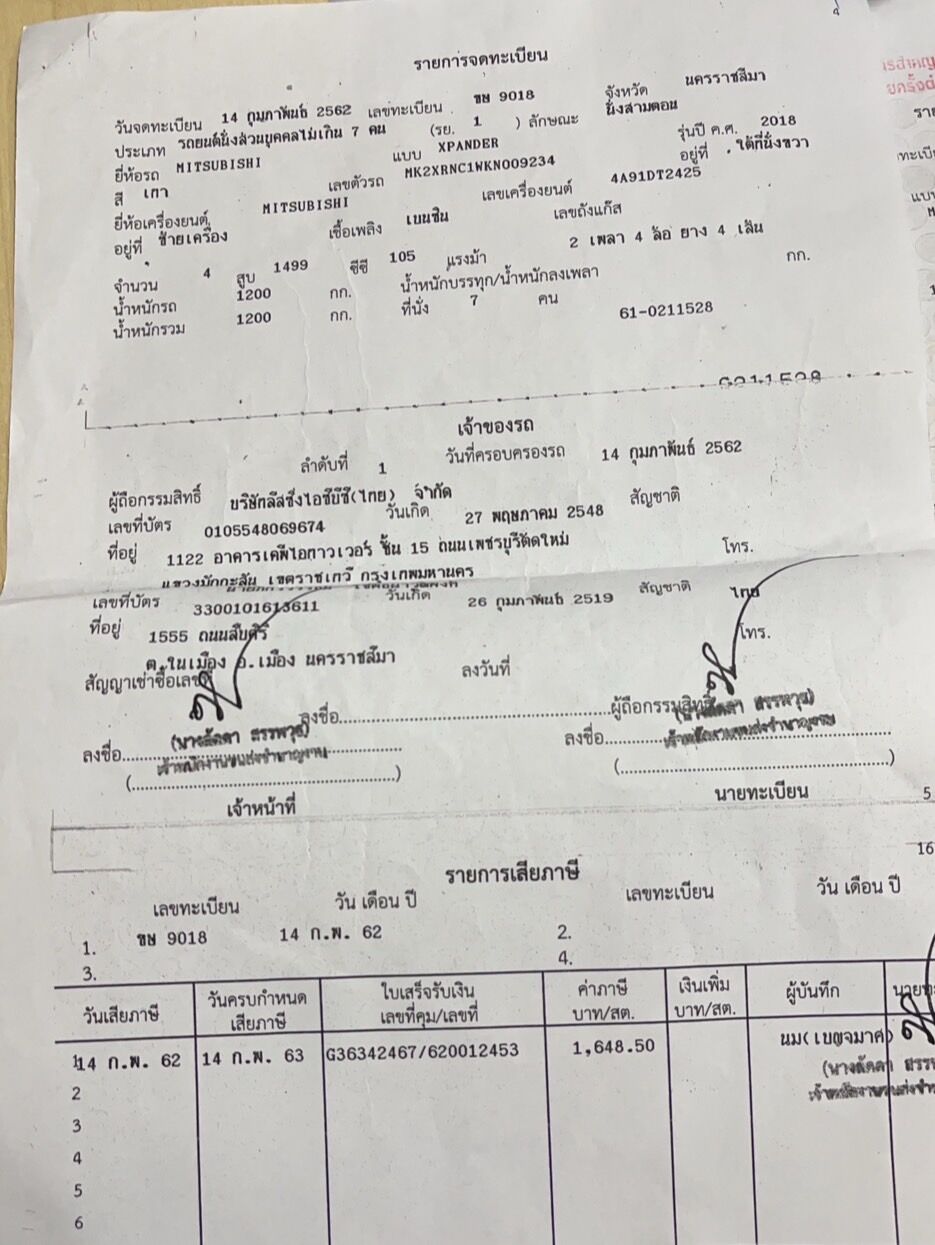 รายการจดทะเบียน
วันจดทะเบียน 14 กุมภาพันธ์ 2562 เลขทะเบียน ขษ 9018 จังหวัด นครราชสีมา
ประเภท รถยนต์นั่งส่วนบุคคลไม่เกิน 7 คน (รย. 1 ) ลักษณะ นั่งสามตอน
ยี่ห้อรถ MITSUBISHI แบบ XPANDER รุ่นปี ค.ศ. 2018
สี เทา เลขตัวรถ MK2XRNC1WKN009234 อยู่ที่ ใต้ที่นั่งขวา
ยี่ห้อเครื่องยนต์ MITSUBISHI เลขเครื่องยนต์ 4A91DT2425
อยู่ที่ ซ้ายเครื่อง เชื้อเพลิง เบนซิน เลขถังแก๊ส
จำนวน 4 สูบ 1499 ซีซี 105 แรงม้า 2 เพลา 4 ล้อ ยาง 4 เส้น
น้ำหนักรถ 1200 กก. น้ำหนักบรรทุก/น้ำหนักลงเพลา กก.
น้ำหนักรวม 1200 กก. ที่นั่ง 7 คน
61-0211528
เจ้าของรถ
ลำดับที่ 1 วันที่ครอบครองรถ 14 กุมภาพันธ์ 2562
ผู้ถือกรรมสิทธิ์ บริษัทลีสซิ่งไอซีบีซี(ไทย) จำกัด
เลขที่บัตร 0105548069674 วันเกิด 27 พฤษภาคม 2548 สัญชาติ
ที่อยู่ 1122 อาคารเคพีไอทาวเวอร์ ชั้น 15 ถนนเพชรบุรีตัดใหม่ โทร.
แขวงมักกะสัน เขตราชเทวี กรุงเทพมหานคร
เลขที่บัตร 3300101613611 วันเกิด 26 กุมภาพันธ์ 2519 สัญชาติ ไทย
ที่อยู่ 1555 ถนนสืบศิริ โทร.
ต.ในเมือง อ.เมือง นครราชสีมา
สัญญาเช่าซื้อเลขที่ ลงวันที่
ลงชื่อ ผู้ถือกรรมสิทธิ์
ลงชื่อ (นางลัดดา สรรพวุธ) ลงชื่อ (นางลัดดา สรรพวุธ)
เจ้าพนักงานขนส่งชำนาญงาน เจ้าพนักงานขนส่งชำนาญงาน
เจ้าหน้าที่ นายทะเบียน
5
16
รายการเสียภาษี
เลขทะเบียน วัน เดือน ปี เลขทะเบียน วัน เดือน ปี
1. ขษ 9018 14 ก.พ. 62 2.
3. 4.
วันเสียภาษี วันครบกำหนดเสียภาษี ใบเสร็จรับเงิน เลขที่คุม/เลขที่ ค่าภาษี บาท/สต. เงินเพิ่ม บาท/สต. ผู้บันทึก
1 14 ก.พ. 62 14 ก.พ. 63 G36342467/620012453 1,648.50 นม(เบญจมาศ)
(นางลัดดา
2
3
4
5
6